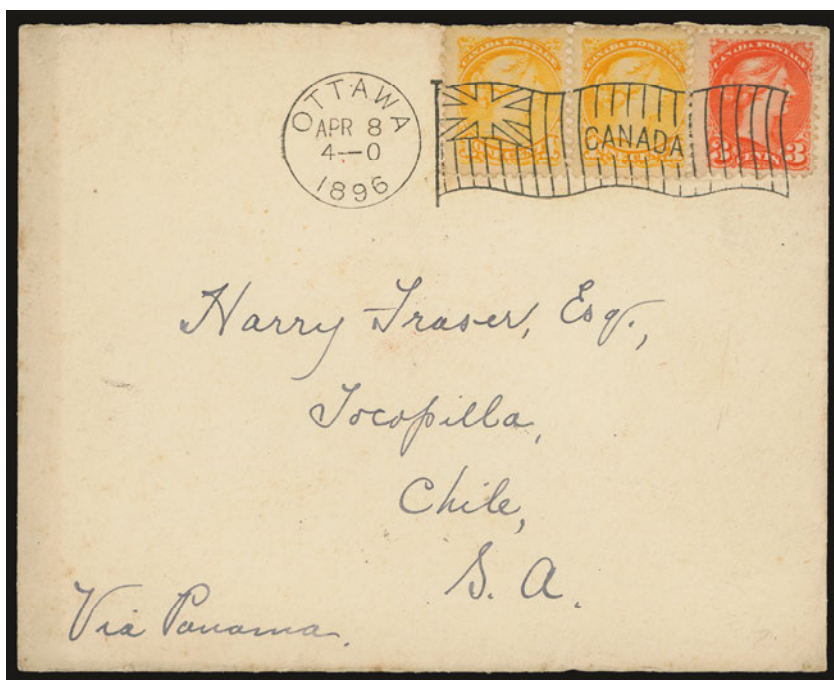 OTTAWA
APR 8
4—0
1896
CANADA POSTAGE
CANADA POSTAGE
CANADA POSTAGE
CANADA
3 CENTS 3
Harry Fraser, Esq.,
Tocopilla,
Chile,
S. A.
Via Panama.